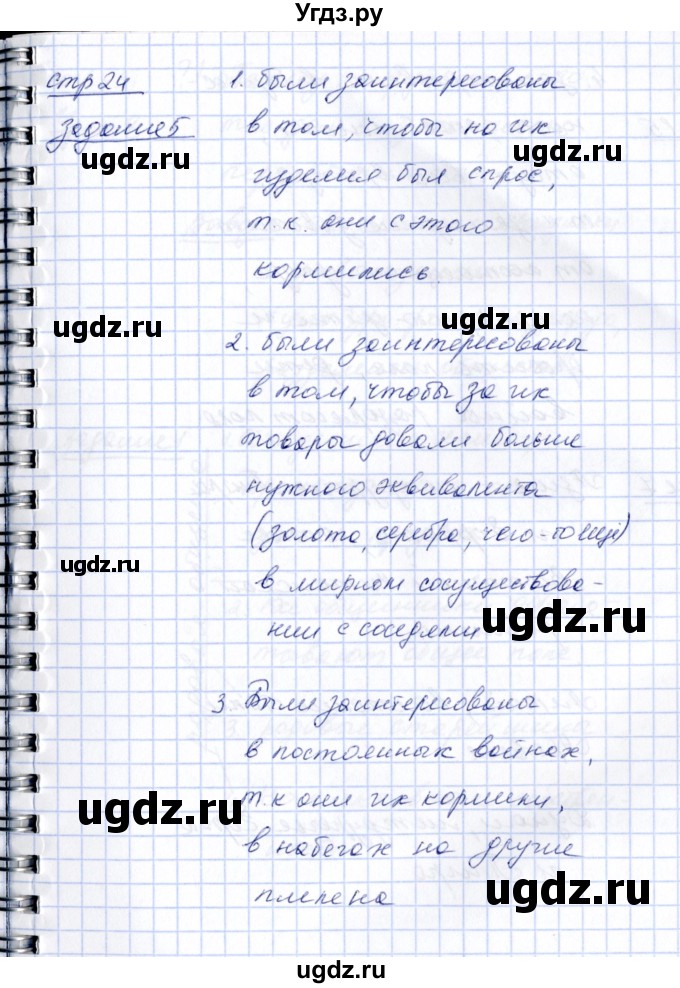 Угдз.ру
стр 24
Задание 5
1. были заинтересованы
в том, чтобы на их
изделия был спрос,
т.к. они с этого
кормились.
2. были заинтересованы
в том, чтобы за их
товары давали больше
нужного эквивалента
(золота, серебра, чего-то ещё)
в мирном сосуществова-
нии с соседями
3. Были заинтересованы
в постоянных войнах,
т.к они их кормили,
в набегах на другие
племена
ugdz.ru
ugdz.ru
ugdz.ru
ugdz.ru
ugdz.ru
ugdz.ru
ugdz.ru
ugdz.ru
ugdz.ru